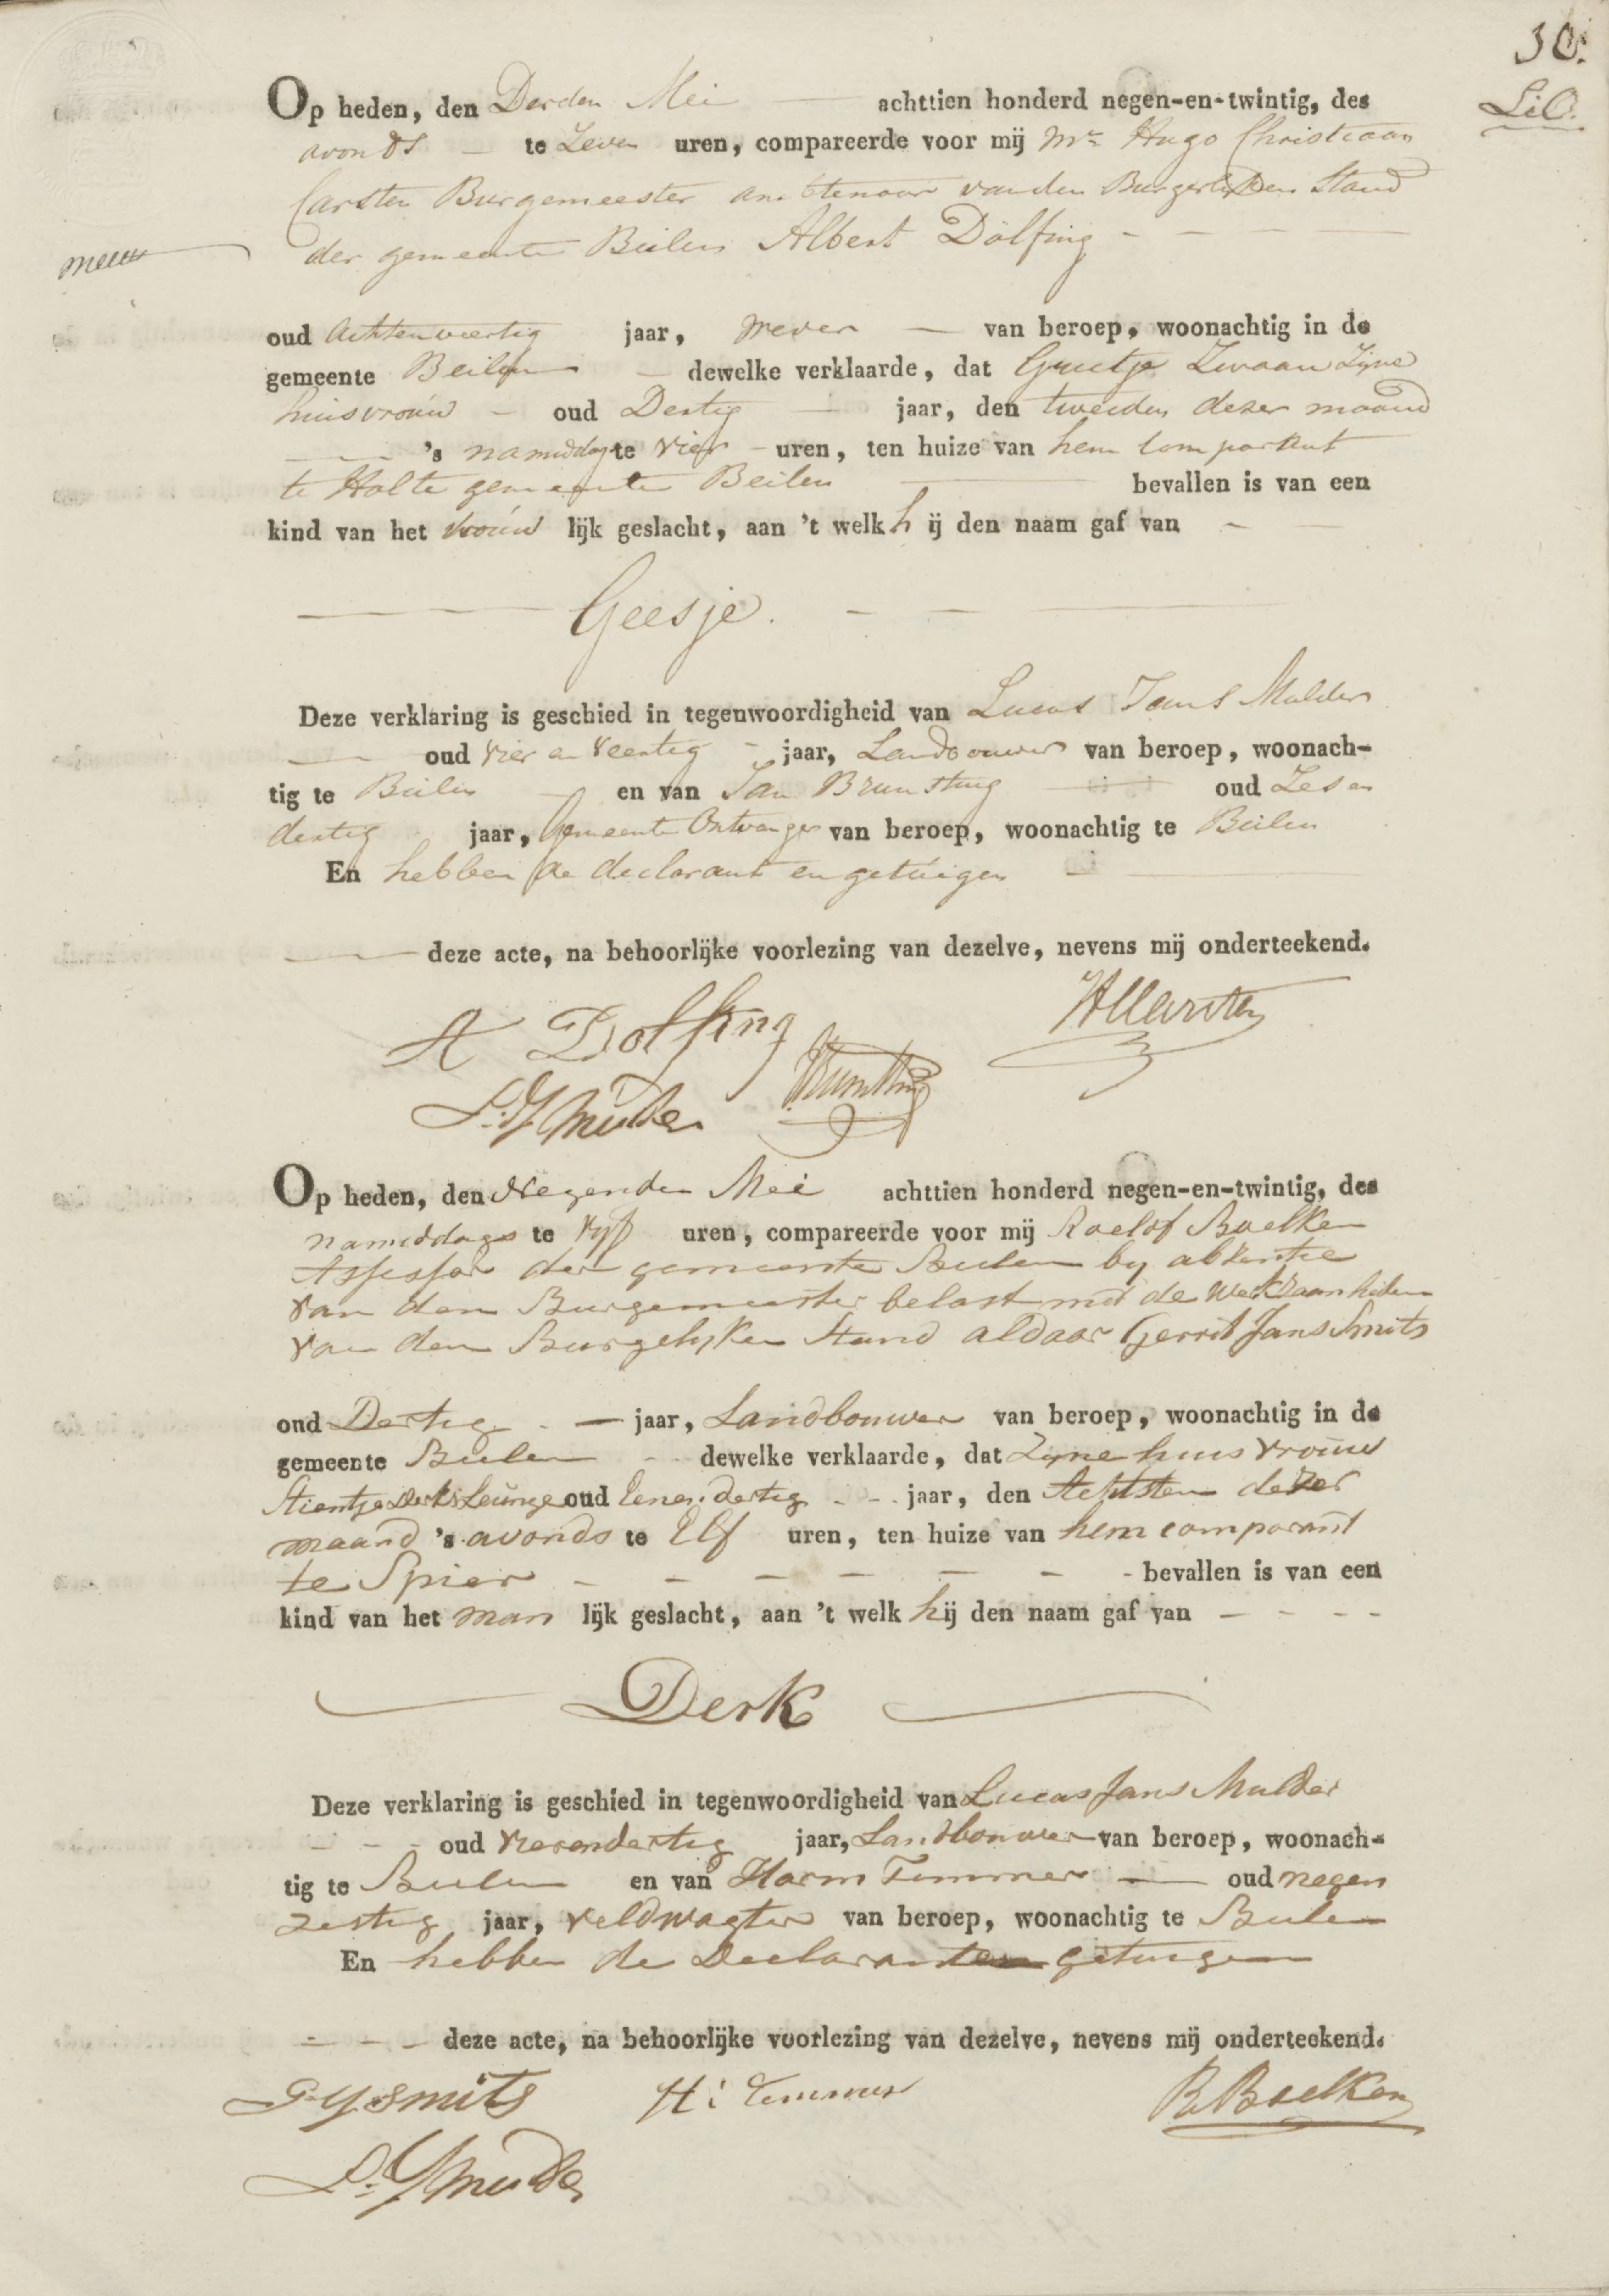 30.
Op heden, den Derden Mei achttien honderd negen-en-twintig, des
avonds te Zeven uren, compareerde voor mij Mr Hugo Christiaan
Carsten Burgemeester ambtenaar van den Burgerlijken Stand
der gemeente Beilen Albert Dölfing
oud Achtenveertig jaar, wever van beroep, woonachtig in de
gemeente Beilen dewelke verklaarde, dat Grietje Zwaan Zijne
huisvrouw oud Dertig jaar, den tweeden dezer maand
's namiddag te vier uren, ten huize van hem Comparant
te Holte gemeente Beilen bevallen is van een
kind van het vrouw lijk geslacht, aan 't welk h ij den naam gaf van
Geesje.
Deze verklaring is geschied in tegenwoordigheid van Lucas Jans Mulder
oud vier en veertig jaar, Landbouwer van beroep, woonach-
tig te Beilen en van Jan Brunsting oud Zes en
dertig jaar, Gemeente Ontvanger van beroep, woonachtig te Beilen
En hebben de declarant en getuigen
deze acte, na behoorlijke voorlezing van dezelve, nevens mij onderteekend.
A Dolfing HCCarsten
L. J Mulder Brunsting
Op heden, den Negenden Mei achttien honderd negen-en-twintig, des
namiddags te vyf uren, compareerde voor mij Roelof Boelken
Assessor der gemeente Beilen by absentie
van den Burgemeester belast met de Werkzaamheden
van den Burgelyken Stand aldaar Gerrit Jans Smits
oud Dertig jaar, Landbouwer van beroep, woonachtig in de
gemeente Beilen dewelke verklaarde, dat Zyne huisvrouw
Stientje Derks Leunge oud Eenendertig jaar, den Achtsten dezer
maand 's avonds te Elf uren, ten huize van hem comparant
te Spier bevallen is van een
kind van het man lijk geslacht, aan 't welk hij den naam gaf van
Derk
Deze verklaring is geschied in tegenwoordigheid van Lucas Jans Mulder
oud vierendertig jaar, Landbouwer van beroep, woonach-
tig te Beilen en van Harm Timmer oud negen
zestig jaar, veldwagter van beroep, woonachtig te Beilen
En hebben de Declaranten getuigen
deze acte, na behoorlijke voorlezing van dezelve, nevens mij onderteekend.
G J Smits H: Timmer R Boelken
L. J Mulder